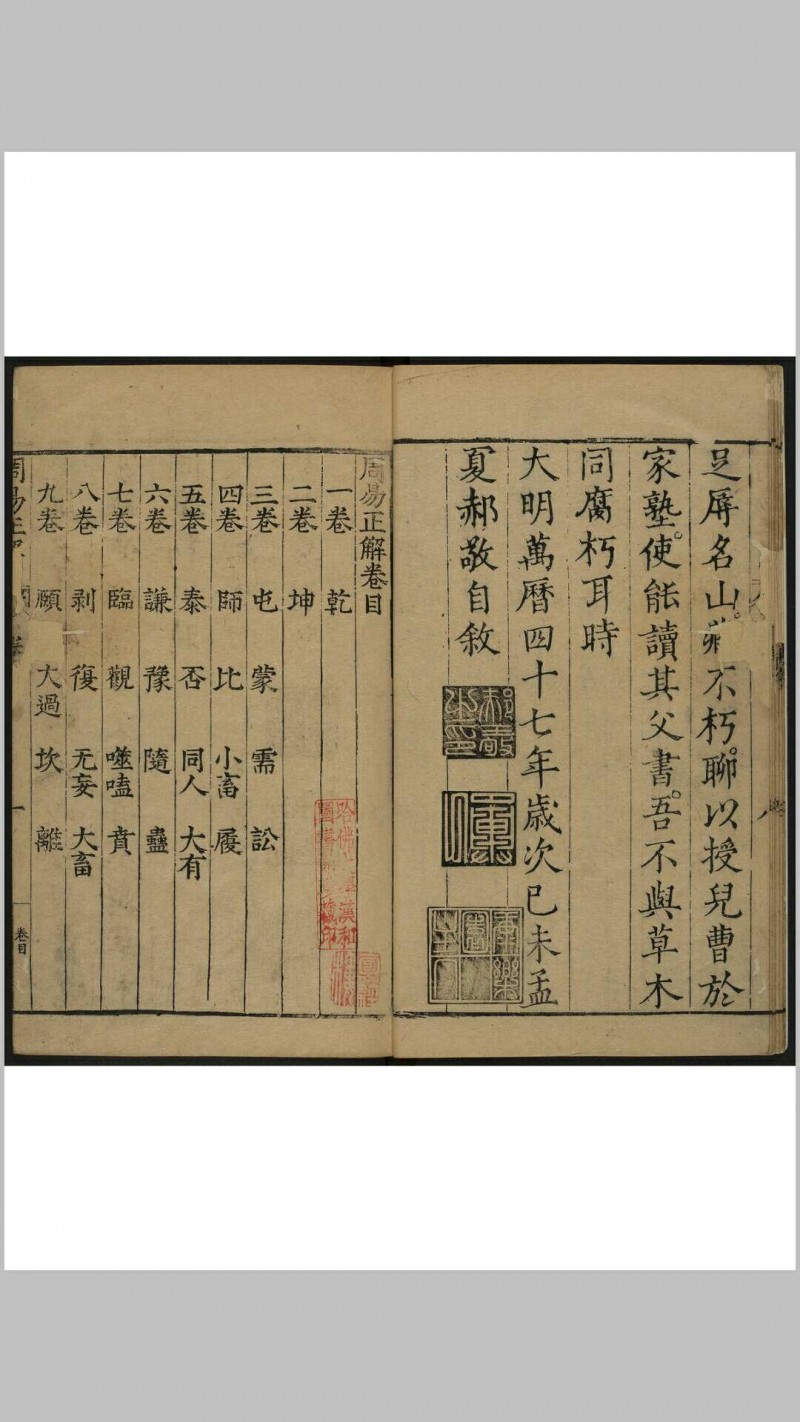 足辱名山不朽聊以授兒曹於
家塾使能讀其父書吾不與草木
同腐朽耳時
大明萬曆四十七年歲次己未孟
夏郝敬自敘
周易正解卷目
一卷 乾
二卷 坤
三卷 屯 蒙 需 訟
四卷 師 比 小畜 履
五卷 泰 否 同人 大有
六卷 謙 豫 隨 蠱
七卷 臨 觀 噬嗑 賁
八卷 剥 復 无妄 大畜
九卷 頤 大過 坎 離
周易正
卷目
一